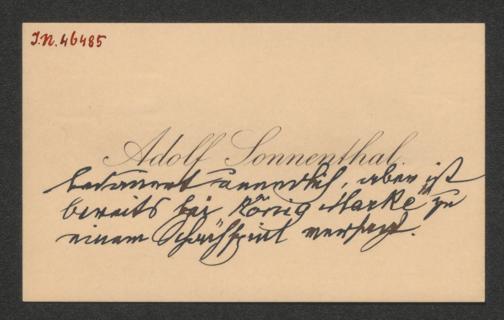 J.N. 46485
Adolf Sonnenthal.
bedauert unendlich, aber ist
bereits bei "König Marke" zu
einem Schachspiel versagt.